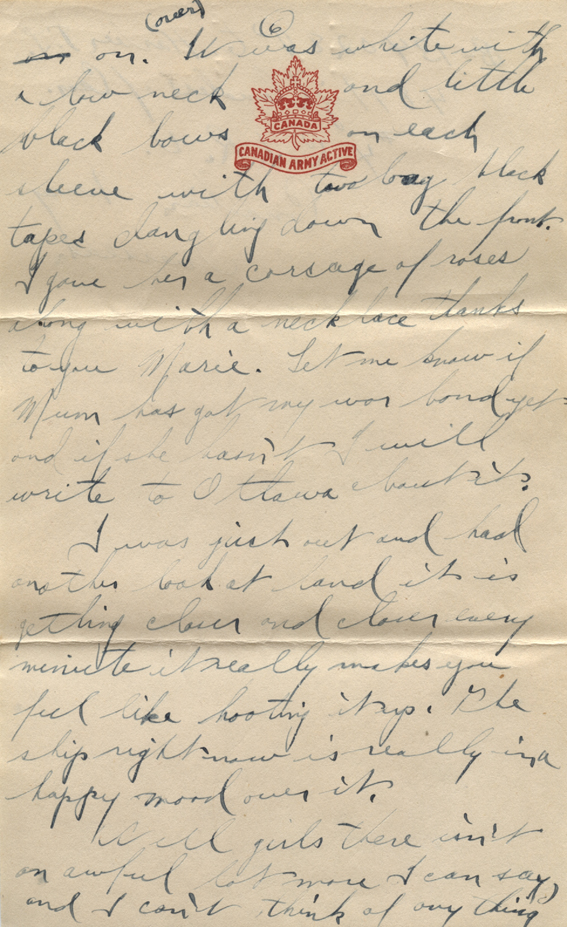 (over)
(6)
on. It was white with
a low neck and little
CANADA
CANADIAN ARMY ACTIVE
black bows on each
sleeve with two long black
tapes dangling down the front.
I gave her a corsage of roses
along with a necklace thanks
to you Marie. Let me know if
Mum has got my war bond yet
and if she hasn't I will
write to Ottawa about it.
I was just out and had
another look at land it is
getting closer and closer every
minute it really makes you
feel like hooting it up. The
ship right now is really in a
happy mood over it.
Well girls there isn't
an awful lot more I can say
and I can't think of any thing